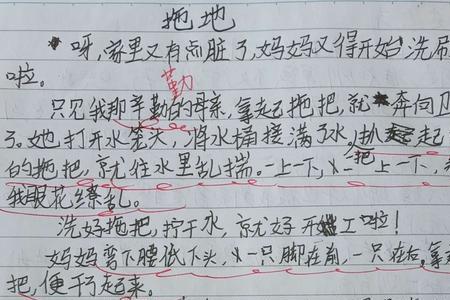 拖地
呀,家里又有点脏了,妈妈又得开始洗刷
啦。
勤
只见我那辛勤的母亲,拿起拖把,就奔向卫
了。她打开水笼头,将水桶接满了水,扒起
的拖把,就往水里乱揣。一上一下,又一把上一下,
我眼花缭乱。
洗好拖把,拧干水,就好开工啦!
妈妈弯下腰低下头,一只脚在前,一只在右。拿
把,便干了起来。